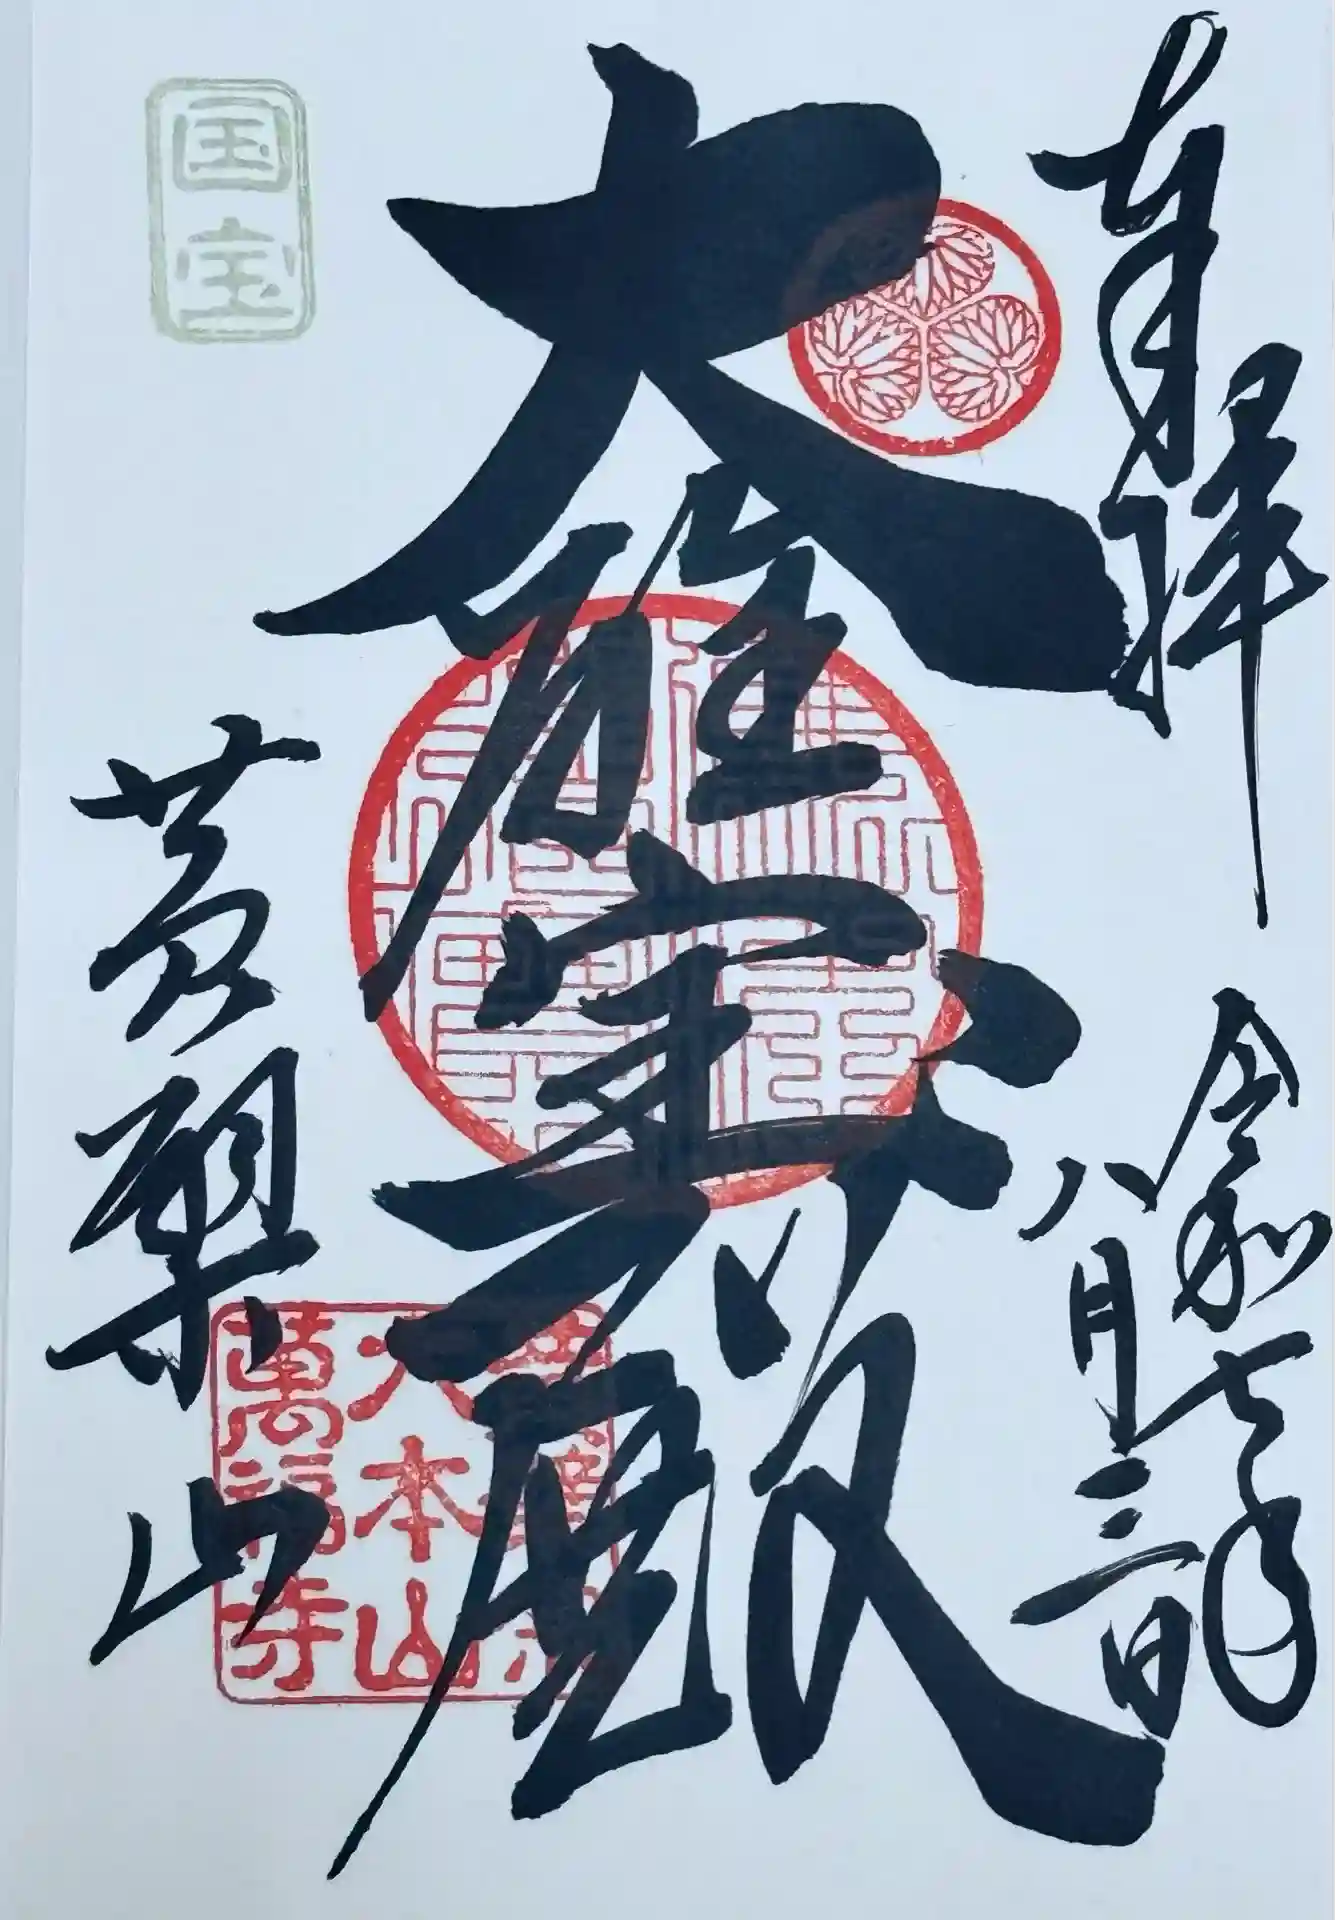 奉拝
令和七年
八月三日
大雄宝殿
国宝
黄檗山
黄檗宗
大本山
萬福寺